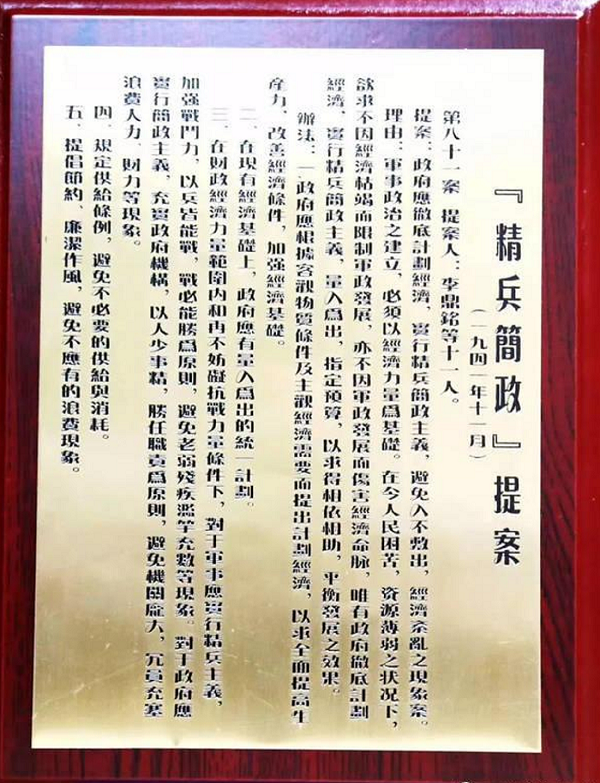 『精兵簡政』提案
（一九四一年十一月）
第八十一案　提案人：李鼎銘等十一人。
提案：政府應徹底計劃經濟，實行精兵簡政主義，避免入不敷出，經濟紊亂之現象案。
理由：軍事政治之建立，必須以經濟力量爲基礎。在今人民困苦，資源薄弱之状况下，
欲求不因經濟枯竭而限制軍政發展，亦不因軍政發展而傷害經濟命脈，唯有政府徹底計劃
經濟，實行精兵簡政主義，量入爲出，指定預算，以求得相依相助，平衡發展之效果。
辦法：一、政府應根據客觀物質條件及主觀經濟需要而提出計劃經濟，以求全面提高生
產力，改善經濟條件，加強經濟基礎。
二、在現有經濟基礎上，政府應有量入爲出的統一計劃。
三、在財政經濟力量範圍内和再不妨礙抗戰力量條件下，對于軍事應實行精兵主義，
加強戰鬥力，以兵皆能戰，戰必能勝爲原則，避免老弱殘疾濫竽充數等現象。對于政府應
實行簡政主義，充實政府機構，以人少事精，勝任職責爲原則，避免機關龐大，冗員充塞
浪費人力、財力等現象。
四、規定供給條例，避免不必要的供給與消耗。
五、提倡節約、廉潔作風，避免不應有的浪費現象。